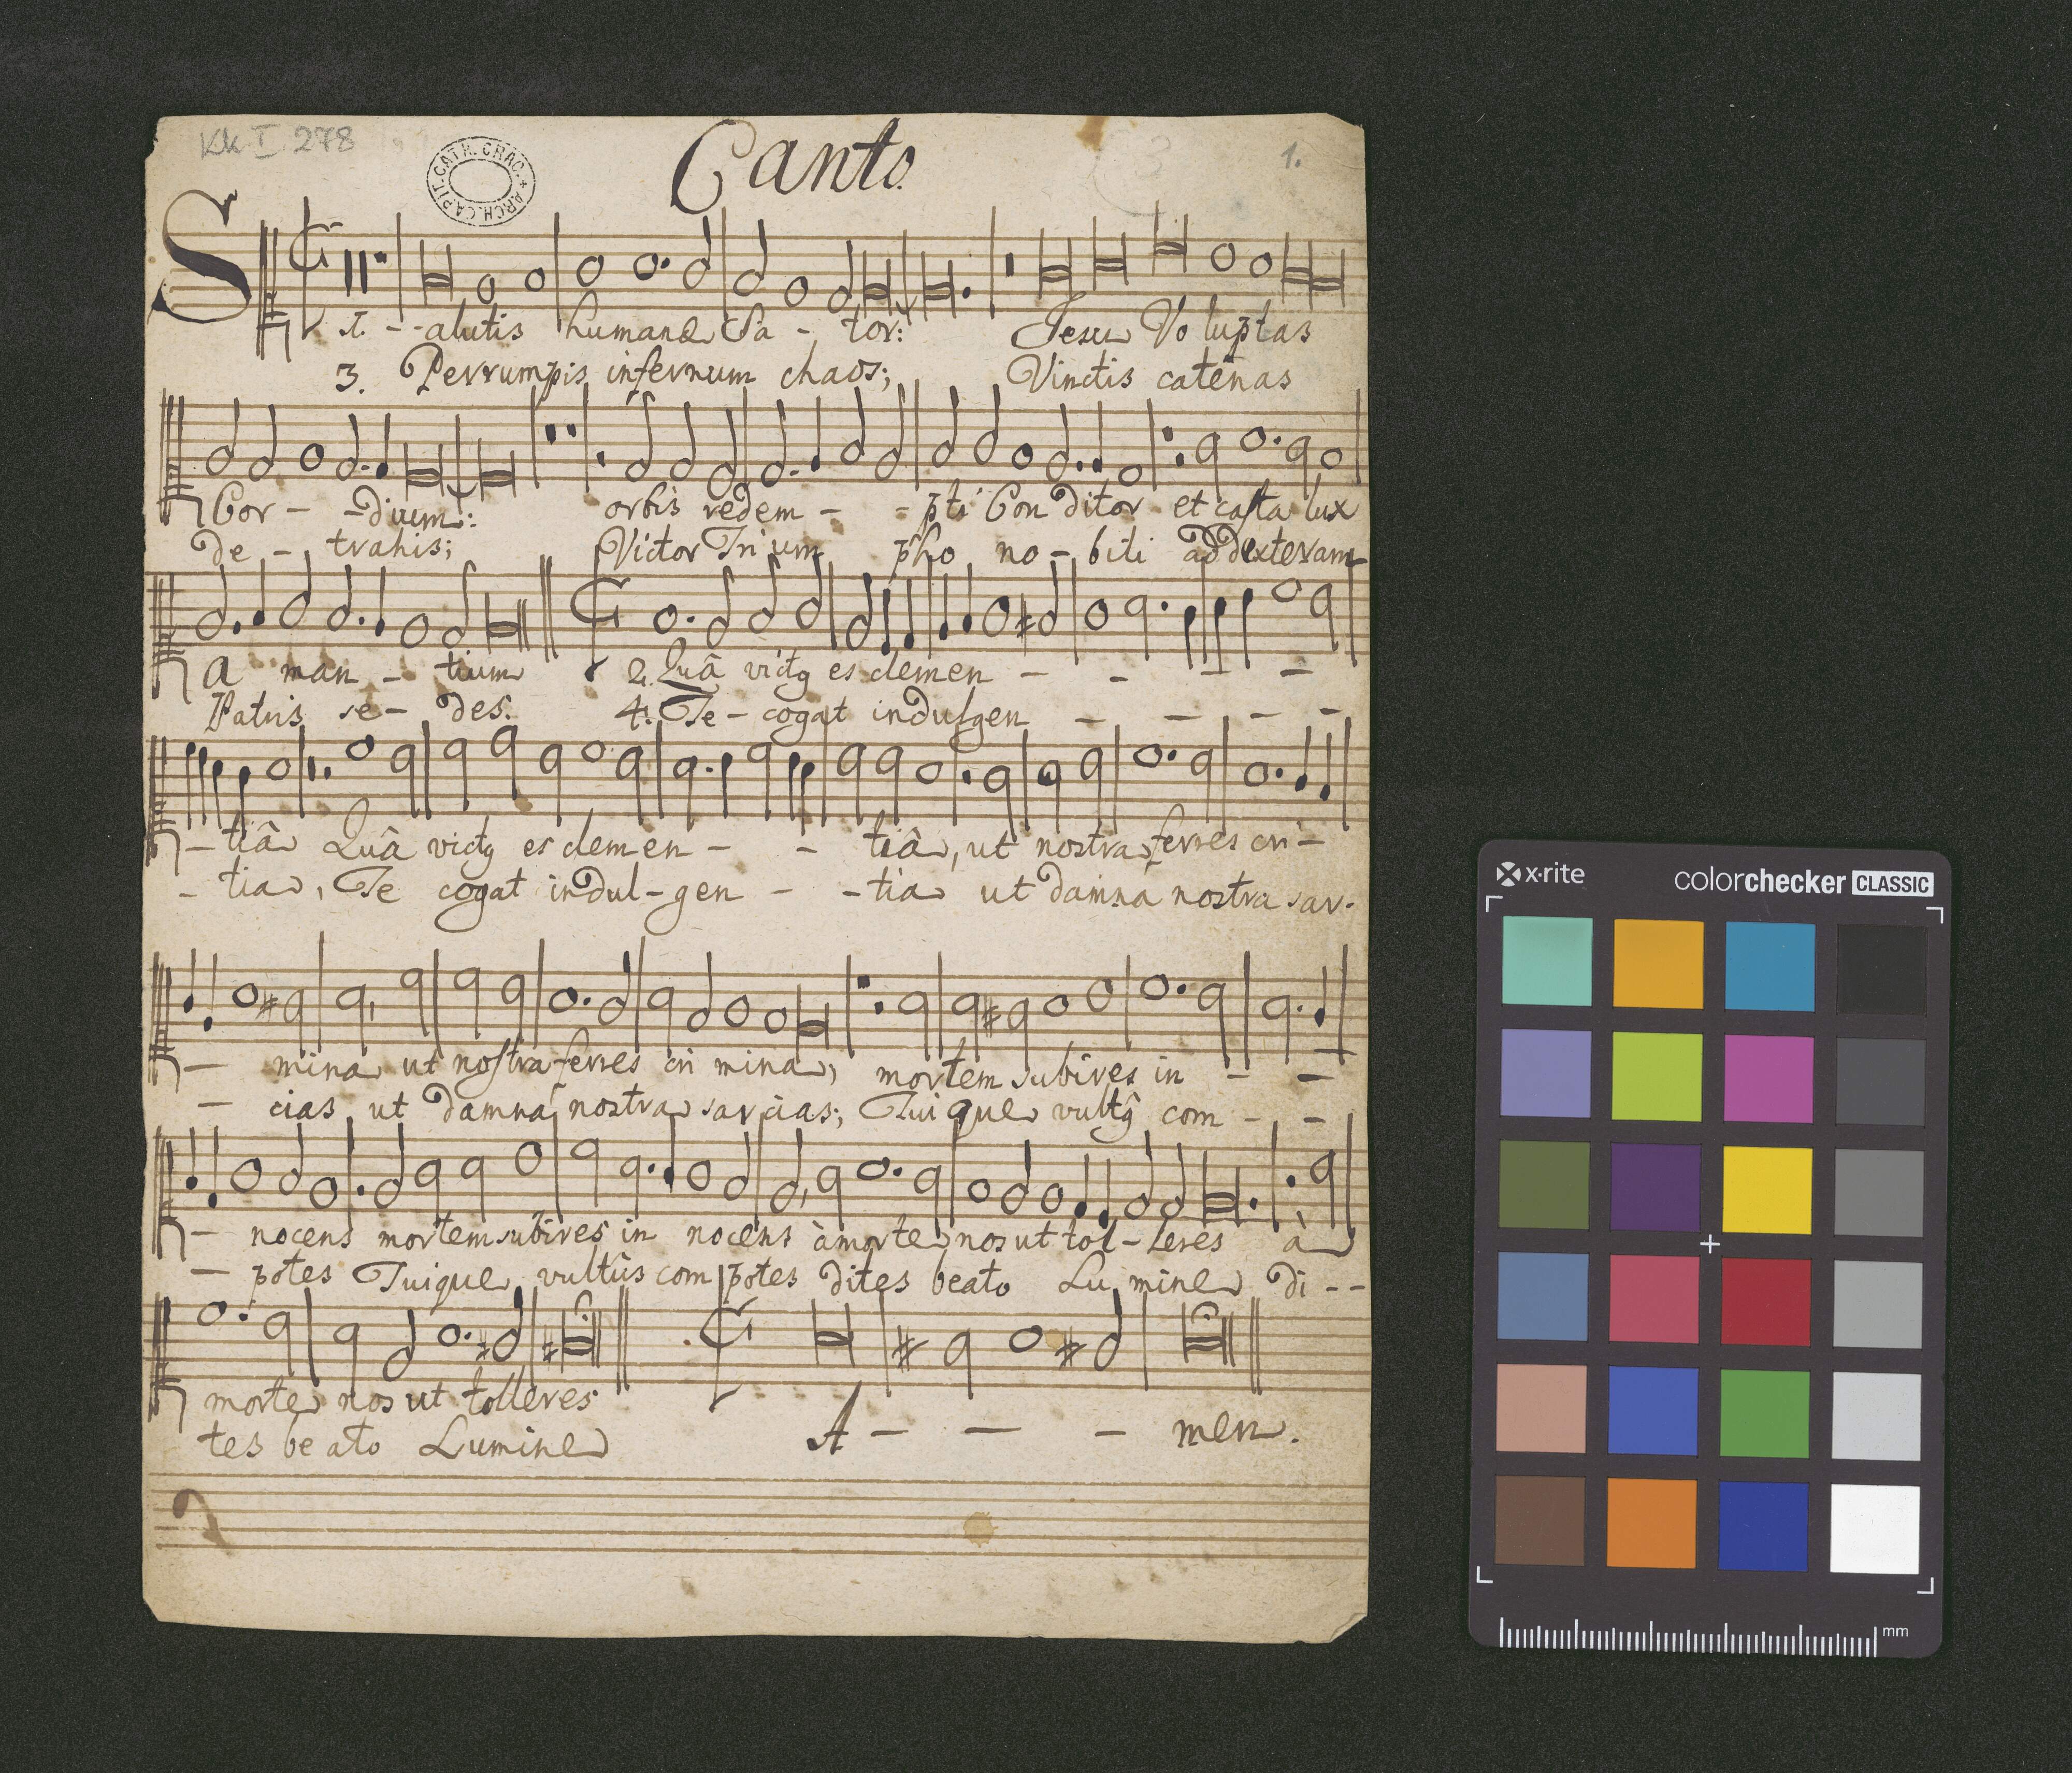 Kk I 278
ARCH. CAPIT. CATH. CRAC.
Canto.
1.
S
1. - - alutis humanæ Sa - tor: Jesu Vo luptas
3. Perrumpis infernum chaos; Vinctis catenas
Cor - - dium: orbis redem - - pti Con ditor et casta lux
de - trahis; Victor Trium pho no - bili ad dexteram
A man - tium 2. Quâ victꝯ es clemen - - - -
Patris se - des. 4. Te - cogat indulgen - - - -
- tiâ Quâ victꝯ es clemen - - tiâ, ut nostra ferres cri -
- tia, Te cogat indul - gen - - tia ut damna nostra sar.
- mina ut nostra ferres cri mina, mortem subires in - -
- cias, ut damna nostra sarcias; Tuique vultꝯ com - -
- nocens mortem subires in nocens à morte nos ut tol - leres à
- potes Tuique vultûs com potes dites beato Lu mine di - -
morte nos ut tolleres
tes be ato Lumine A - - - men.
x·rite
colorchecker CLASSIC
mm